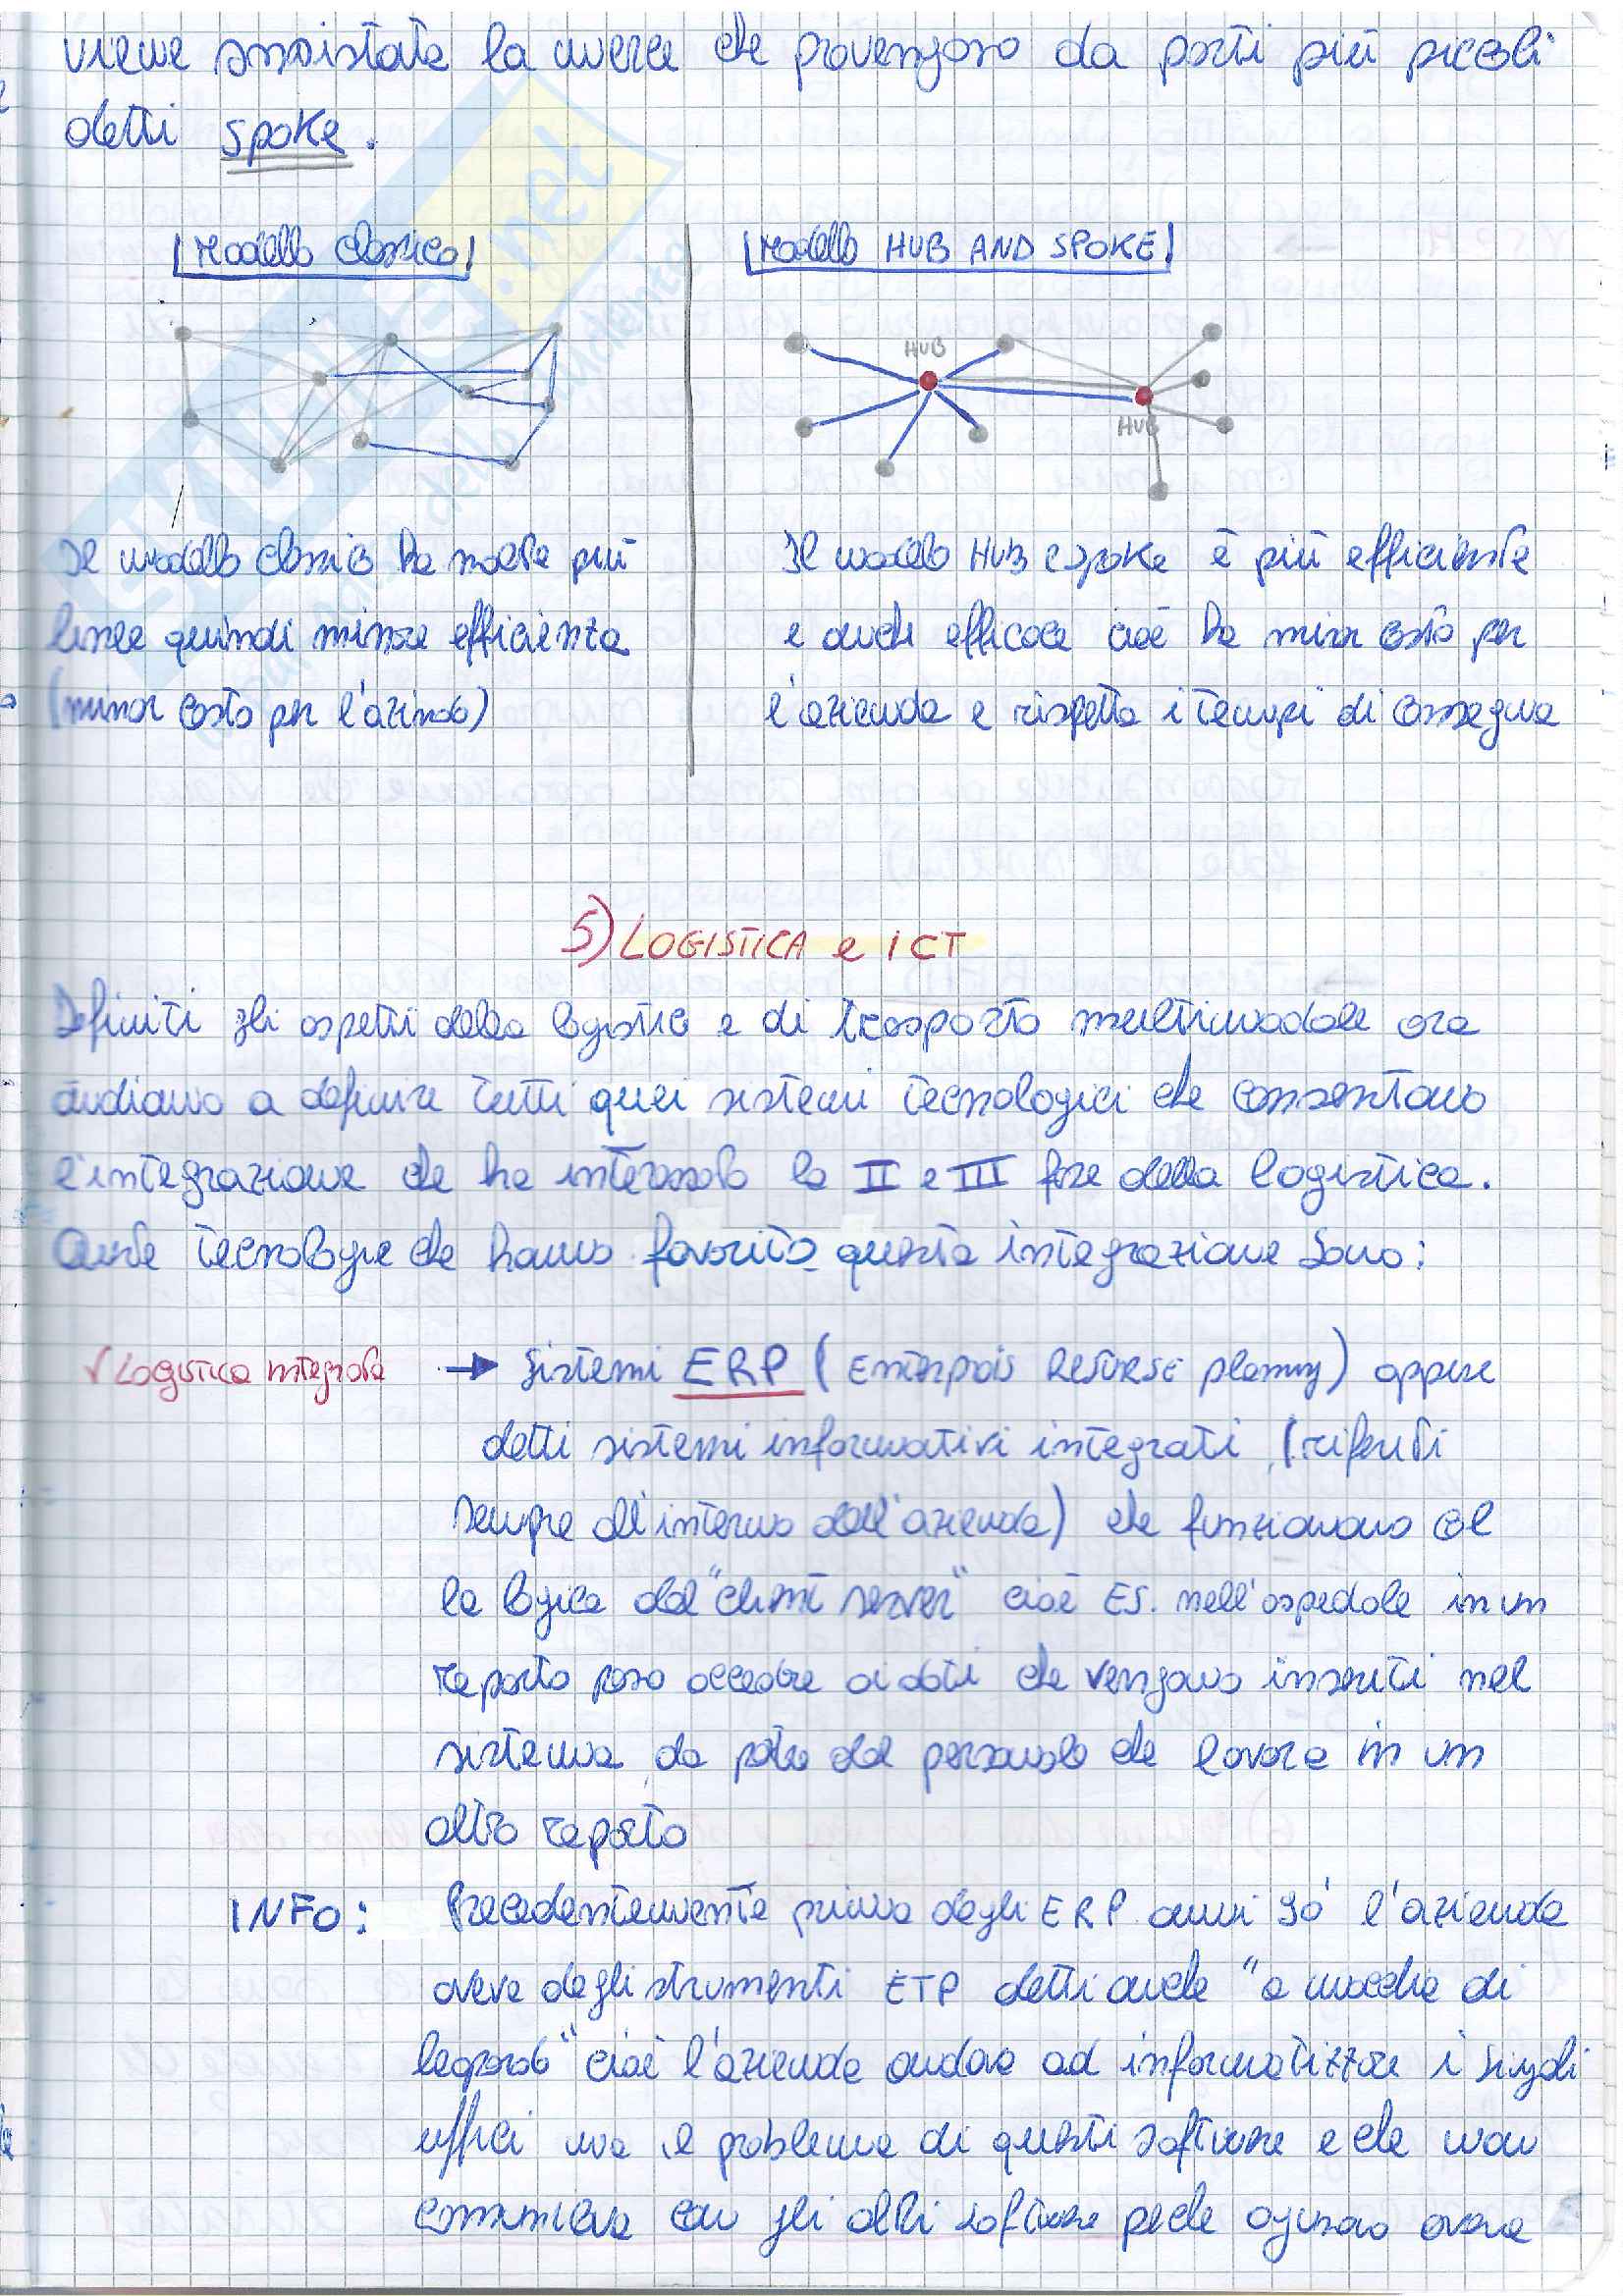 viene smistata la merce che provengono da porti più piccoli
detti spoke.
Modello classico
Modello HUB AND SPOKE
HUB
HUB
Il modello classico ha molte più
linee quindi minore efficienza
(minor costo per l'azienda)
Il modello HUB e spoke è più efficiente
e anche efficace cioè ha minor costo per
l'azienda e rispetta i tempi di consegna
5) LOGISTICA e ICT
Definiti gli aspetti della logistica e di trasporto multimodale ora
andiamo a definire tutti quei sistemi tecnologici che consentono
l'integrazione che ha interessato la II e III fase della logistica.
Queste tecnologie che hanno favorito questa integrazione sono:
√ Logistica integrata → Sistemi ERP ( Enterpris Resurse planning) oppure
detti sistemi informativi integrati (riferiti
sempre all'interno dell'azienda) che funzionano col
la logica del "client server" cioè ES. nell'ospedale in un
reparto posso accedere ai dati che vengono inseriti nel
sistema da parte del personale che lavora in un
altro reparto
INFO: Precedentemente prima degli ERP anni 90 l'azienda
aveva degli strumenti ETP detti anche "a macchie di
leopardo" cioè l'azienda andava ad informatizzare i singoli
uffici ma il problema di questi software e che non
comunicava con gli altri software perche ognuno aveva